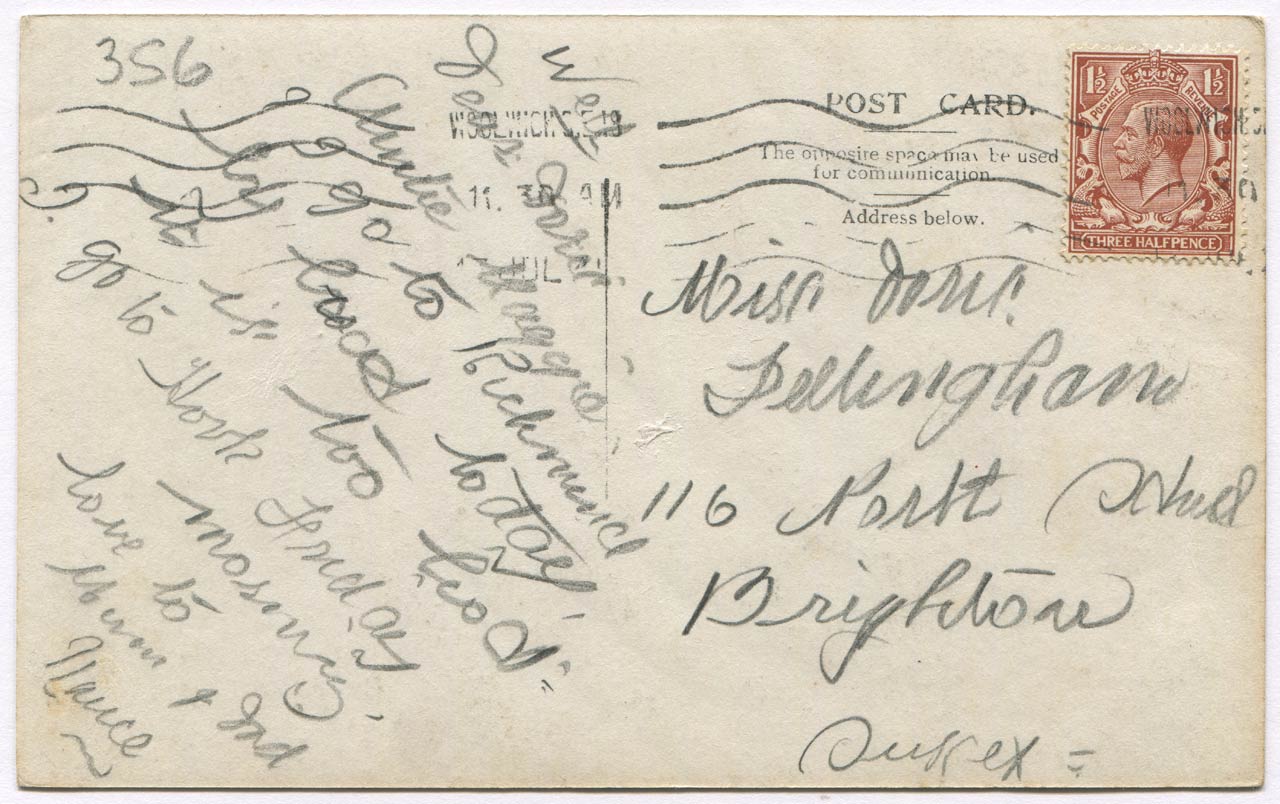 356
Wed
Dear Doris
Auntie Maggie
& I go to Richmond
by boat today,
It is too
I go to Hook Friday
morning.
love to
Mum & Dad
Nance
WOOLWICH S.E.18
11.30 AM
JUL
POST CARD.
The opposite space may be used
for communication.
Address below.
1½ POSTAGE REVENUE 1½
THREE HALFPENCE
WOOLWICH
Miss Doris
Fellingham
116 North Road
Brighton
Sussex =